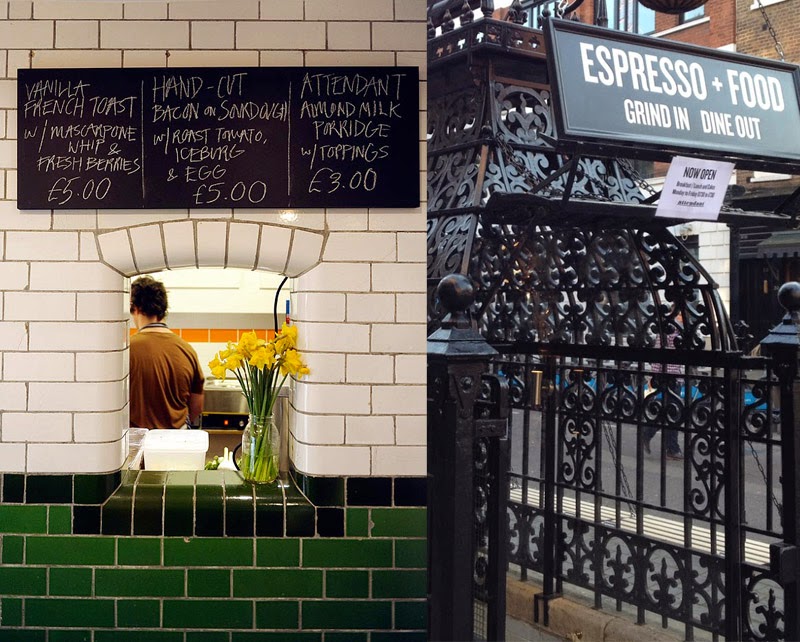 VANILLA
FRENCH TOAST
w/ MASCARPONE
WHIP &
FRESH BERRIES
£5.00
HAND-CUT
BACON on SOURDOUGH
w/ ROAST TOMATO,
ICEBURG
& EGG
£5.00
ATTENDANT
ALMOND MILK
PORRIDGE
w/ TOPPINGS
£3.00
ESPRESSO + FOOD
GRIND IN DINE OUT
NOW OPEN
Breakfast / Lunch and Cakes
Monday to Friday
Attendant